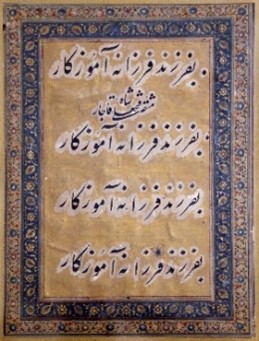 بفرزند فرزانه آموزگار
مشقه فتحعلی شاه قاجار
بفرزند فرزانه آموزگار
بفرزند فرزانه آموزگار
بفرزند فرزانه آموزگار